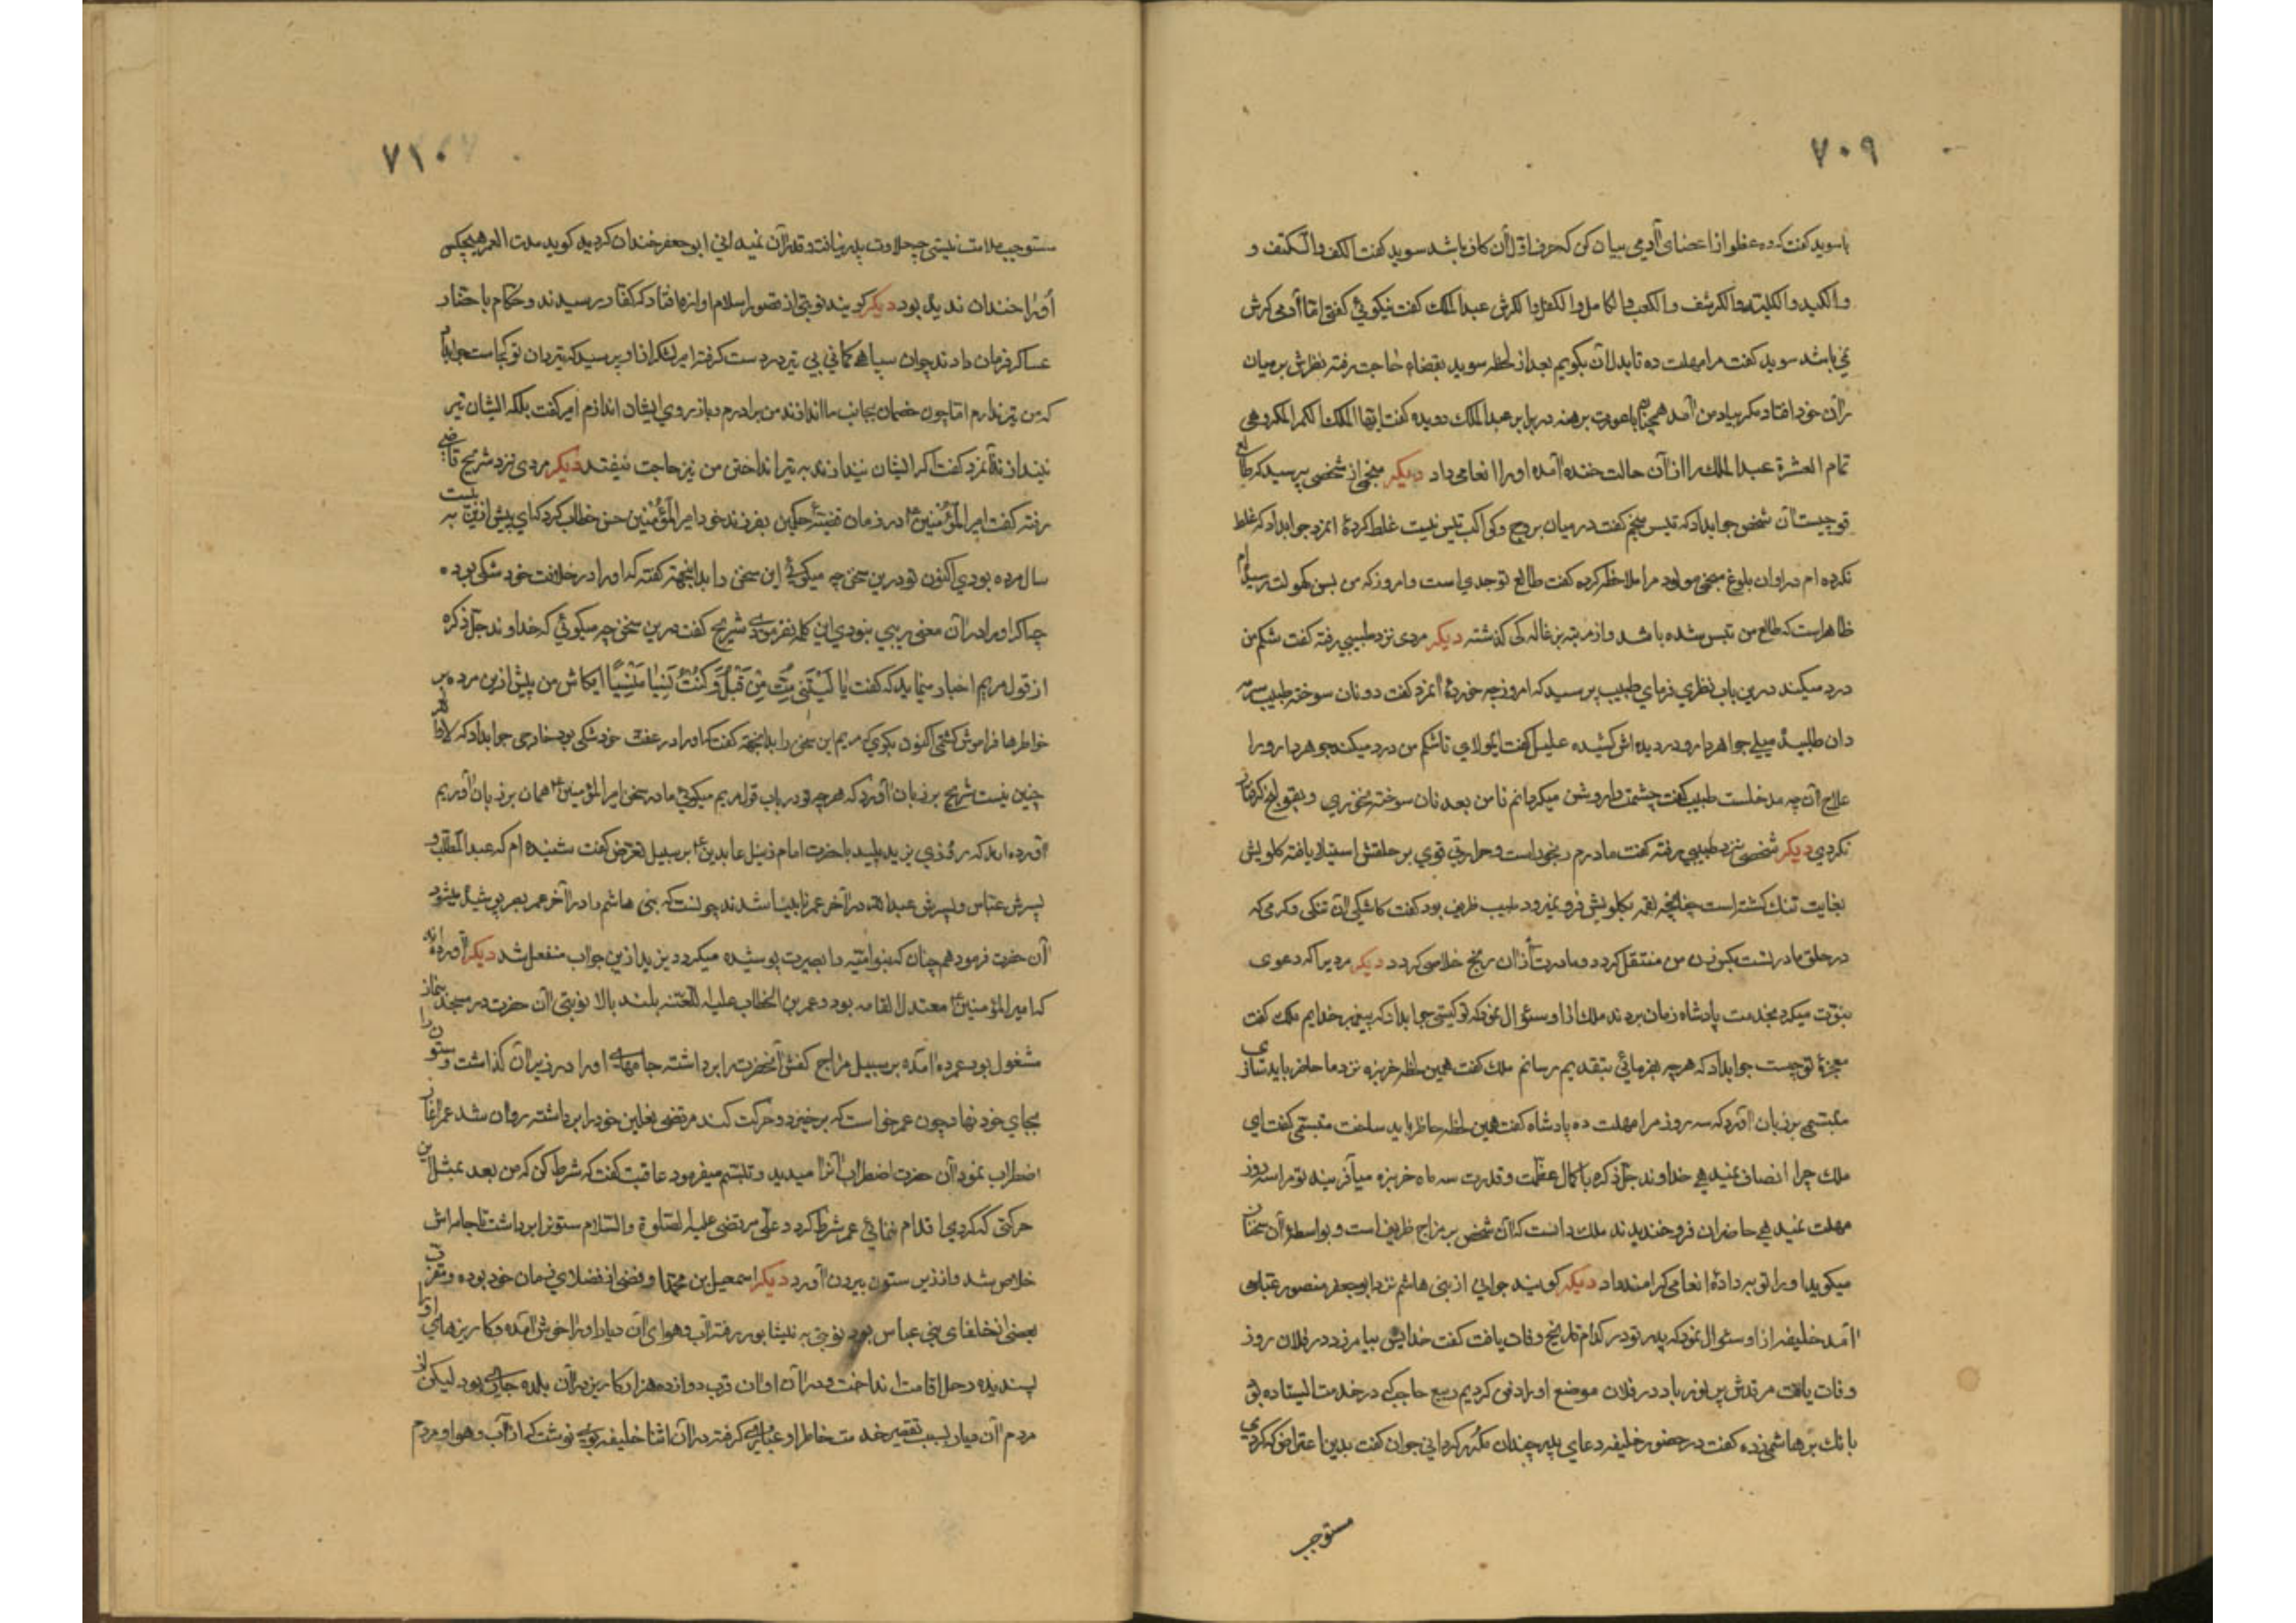 ٧٠٩
با سوید گفت که ده عظو از اعضای آدمی بیان کن که حرف اول آن کاف باشد سوید گفت الکف و الکتف و
و الکبد و الکلیة و الکرشف و الکعب و الکاهل و الکفل و الکرش عبد الملک گفت نیکوئی گفتی اما آدمی کرش
نمی باشد سوید گفت مرا مهلت ده تا بدل آن بگویم بعد از لحظه سوید بقضاء حاجت رفته نظرش بر میان
ران خود افتاد مکر بیاد من آمد همچنان با عورت برهنه در برابر عبد الملک دویده گفت ایها الملک الکمر الکمر و هی
تمام العشرة عبد الملک را از آن حالت خنده آمده او را انعامی داد دیکر منجمی از شخصی پرسید که طالع
تو چیست آن شخص جوابداد که تیس منجم گفت در میان بروج و کواکب تیس نیست غلط کردهٔ انمرد جوابداد که غلط
نکرده ام در اوان بلوغ منجمی مولود مرا ملاحظه کرده گفت طالع تو جدی است و امروز که من بسن کهولت رسیدام
ظاهر است که طالع من تیس شده باشد و از مرتبه بزغاله کی گذشته دیکر مردی نزد طبیبی رفته گفت شکم من
درد میکند درین باب نظری فرمای طبیب پرسید که امروز چه خوردهٔ انمرد گفت دو نان سوخته طبیب سرمه
دان طلبیده میلی جواهر دارو در دیده اش کشیده علیل گفت ای مولای تا شکم من درد میکند جوهر دارو را
علاج آن چه مدخلست طبیب گفت چشمت را روشن میکردانم تا من بعد نان سوخته نخوری و بقولنج گرفتار
نکردی دیکر شخصی نزد طبیبی رفته گفت مادرم رنجور است و حرارتی قوی بر حلقش استیلا یافته کلویش
بغایت تنک کشته است چنانچه لقمه بکلویش فرو نمیرود طبیب ظریف بود گفت کاشکی آن تنکی و کرمی که
در حلق مادر تست بکس زن من منتقل کردد و مادرت از آن رنج خلاصی کردد دیکر مردیرا که دعوی
نبوّت میکرد بخدمت پادشاه زمان بردند ملک از او سئوال نمود که تو کیستی جوابداد که پیغمبر خدایم ملک گفت
معجزهٔ تو چیست جوابداد که هر چه بفرمائی بتقدیم رسانم ملک گفت همین لحظه خربزه نزد ما حاضر باید سازی
متنبّی بر زبان آورد که سه روز مرا مهلت ده پادشاه گفت همین لحظه حاظر باید ساخت متنبّی گفت ای
ملک چرا انصاف نمیدهی خداوند جلّ ذکره با کمال عظمت و قدرت سه ماه خربزه میآفریند تو مرا سه روز
مهلت نمیدهی حاضران فرو خندیدند ملک دانست که آن شخص بر مزاج ظریف است و بواسطهٔ آن سخنان
میکوید او را توبه داده انعامی کرامند داد دیکر کویند جوانی از بنی هاشم نزد ابو جعفر منصور عبّاسی
آمد خلیفه از او سئوال نمود که پدر تو در کدام تاریخ وفات یافت گفت خدایش بیامرزد در فلان روز
وفات یافت مرقدش پر نور باد در فلان موضع او را دفن کردیم ربیع حاجب که در خدمت ایستاده بود
بانک بر هاشمی زده گفت در حضور خلیفه دعای پدر چندان مکرّر کردانی جوان گفت بدین اعتراض که کردی
مستوجب
٧١٠
مستوجب ملامت نیستی چه حلاوت پدر نیافته و قدر آن نمیدانی ابو جعفر خندان کردید کویند مدت العمر هیچکس
او را خندان ندیده بود دیکر کویند نوبتی از قصور اسلام اوازه افتاد که کفار در رسیدند و حکّام باحضار
عساکر فرمان دادند چون سپاهی کمانی بی تیر در دست کرفته امیر لشکر از او پرسید که تیردان تو کجاست جوابداد
که من تیر ندارم اما چون خصمان بجانب ما اندازند من بردارم و باز بروی ایشان اندازم امیر گفت بلکه ایشان تیر
نیندازند انمرد گفت اکر ایشان نیندازند به تیر انداختن من نیز حاجت نیفتد دیکر مردی نزد شریح قاضی
رفته گفت امیر المؤمنین در زمان قضیهٔ حکمین بفرزند خود امیر المؤمنین حسن خطاب کرد که ای پیش ازین به بیست
سال مرده بودی اکنون تو درین سخن چه میکوئی این سخن را بدانجهة گفته که او را در خلافت خود شکی بود
چه اکر او را در آن معنی ریبی نبودی این کلمه نفرمودی شریح گفت درین سخن چه میکوئی که خداوند جلّ ذکره
از قول مریم اخبار مینماید که گفت یا لَیْتَنی مِتُّ مِنْ قَبْلُ وَ کُنْتُ نَسْیاً مَنْسِیّاً ایکاش من پیش ازین مرده بر
خواطرها فراموش کشتمی اکنون بکوی که مریم این سخن را بدانجهة گفت که او را در عفت خود شکی بود خارجی جوابداد که لا واللّه
چنین نیست شریح بر زبان آورد که هر چه تو در باب قول مریم میکوئی ما در سخن امیر المؤمنین همان بر زبان آوریم
آورده اند که روزی یزید پلید با حضرت امام زین العابدین بر سبیل تعرّض گفت شنیده ام که عبد المطّلب و
پسرش عبّاس و پسرش عبد اللّه در آخر عمر نابینا شدند چونست که بنی هاشم را در آخر عمر بصر پوشیده میشود
آن حضرت فرمود هم چنان که بنو امیّه را بصیرت پوشیده میکردد یزید ازین جواب منفعل شد دیکر آورده اند
که امیر المؤمنین معتدل القامه بود و عمر بن الخطاب علیه اللّعنه بلند بالا نوبتی آن حضرت در مسجد بنماز
مشغول بود عمر ده آمده بر سبیل مزاح کفش آنحضرت را برداشته جامهای او را در زیر آن گذاشت و ستون را
بجای خود نهاد چون عمر خواست که برخیزد و حرکت کند مرتضی نعلین خود را برداشته روان شد عمر آغاز
اضطراب نمود آن حضرت اضطراب آنرا میدید و تبسّم میفرمود عاقبت گفت که شرط کن که من بعد بمثل این
حرکتی که کردی اقدام ننمائی عمر شرط کرد و علی مرتضی علیه الصّلوة والسّلام ستونرا برداشت تا جامه اش
خلاص شد و از زیر ستون بیرون آورد دیکر اسمعیل بن محمّد از فضلای زمان خود بوده و مقرّب
بعضی از خلفای بنی عباس بود نوبتی به نیشابور رفته آب و هوای آن دیار او را خوش آمده و کاریزهای او را
پسندیده رحل اقامت انداخت و در آن اوان قرب دوازده هزار کاریز در آن بلده جاری بود لیکن از
مردم آن دیار بسبب تقصیر خدمت خاطر او غباری کرفته در آن اثنا خلیفه بوی نوشت که از آب و هوا و مردم